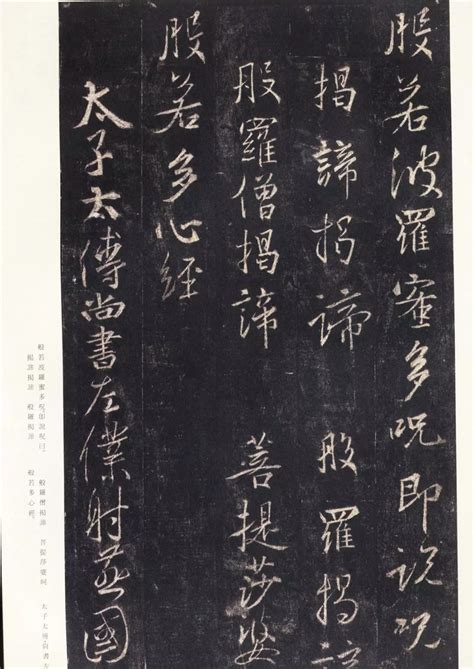 般若波羅蜜多呪即說呪
揭諦揭諦 般羅揭諦
般羅僧揭諦 菩提莎婆
般若多心經
太子太傅尚書左僕射燕國
般若波羅蜜多呪
揭諦揭諦 般羅揭諦
般羅僧揭諦 菩提莎婆呵
般若多心經
太子太傅尚書左